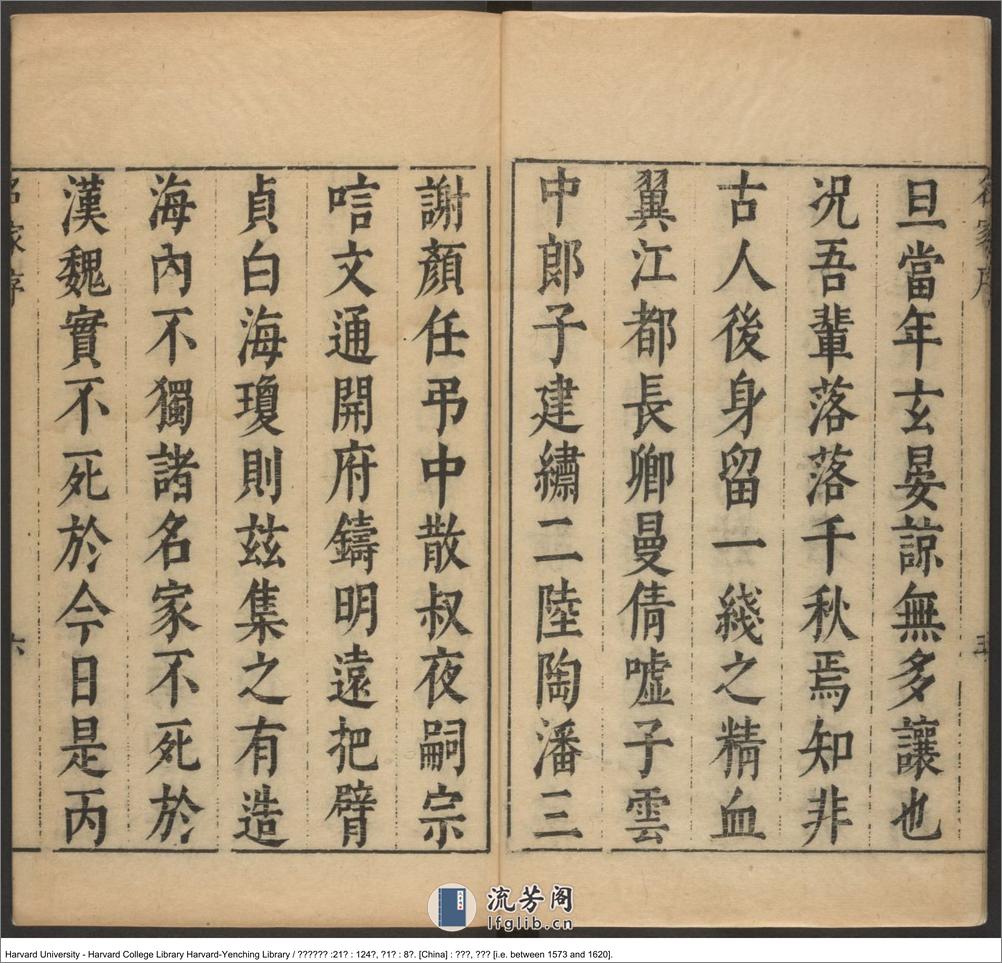 旦當年玄晏諒無多讓也
况吾輩落落千秋焉知非
古人後身留一綫之精血
翼江都長卿曼倩嘘子雲
中郎子建繡二陸陶潘三
謝顏任弔中散叔夜嗣宗
唁文通開府鑄明遠把臂
貞白海瓊則玆集之有造
海內不獨諸名家不死於
漢魏實不死於今日是丙
名家序
五
名家序
六
流芳阁
lfglib.cn
Harvard University - Harvard College Library Harvard-Yenching Library / ?????? :21? : 124?, ?1? : 8?. [China] : ???, ??? [i.e. between 1573 and 1620].